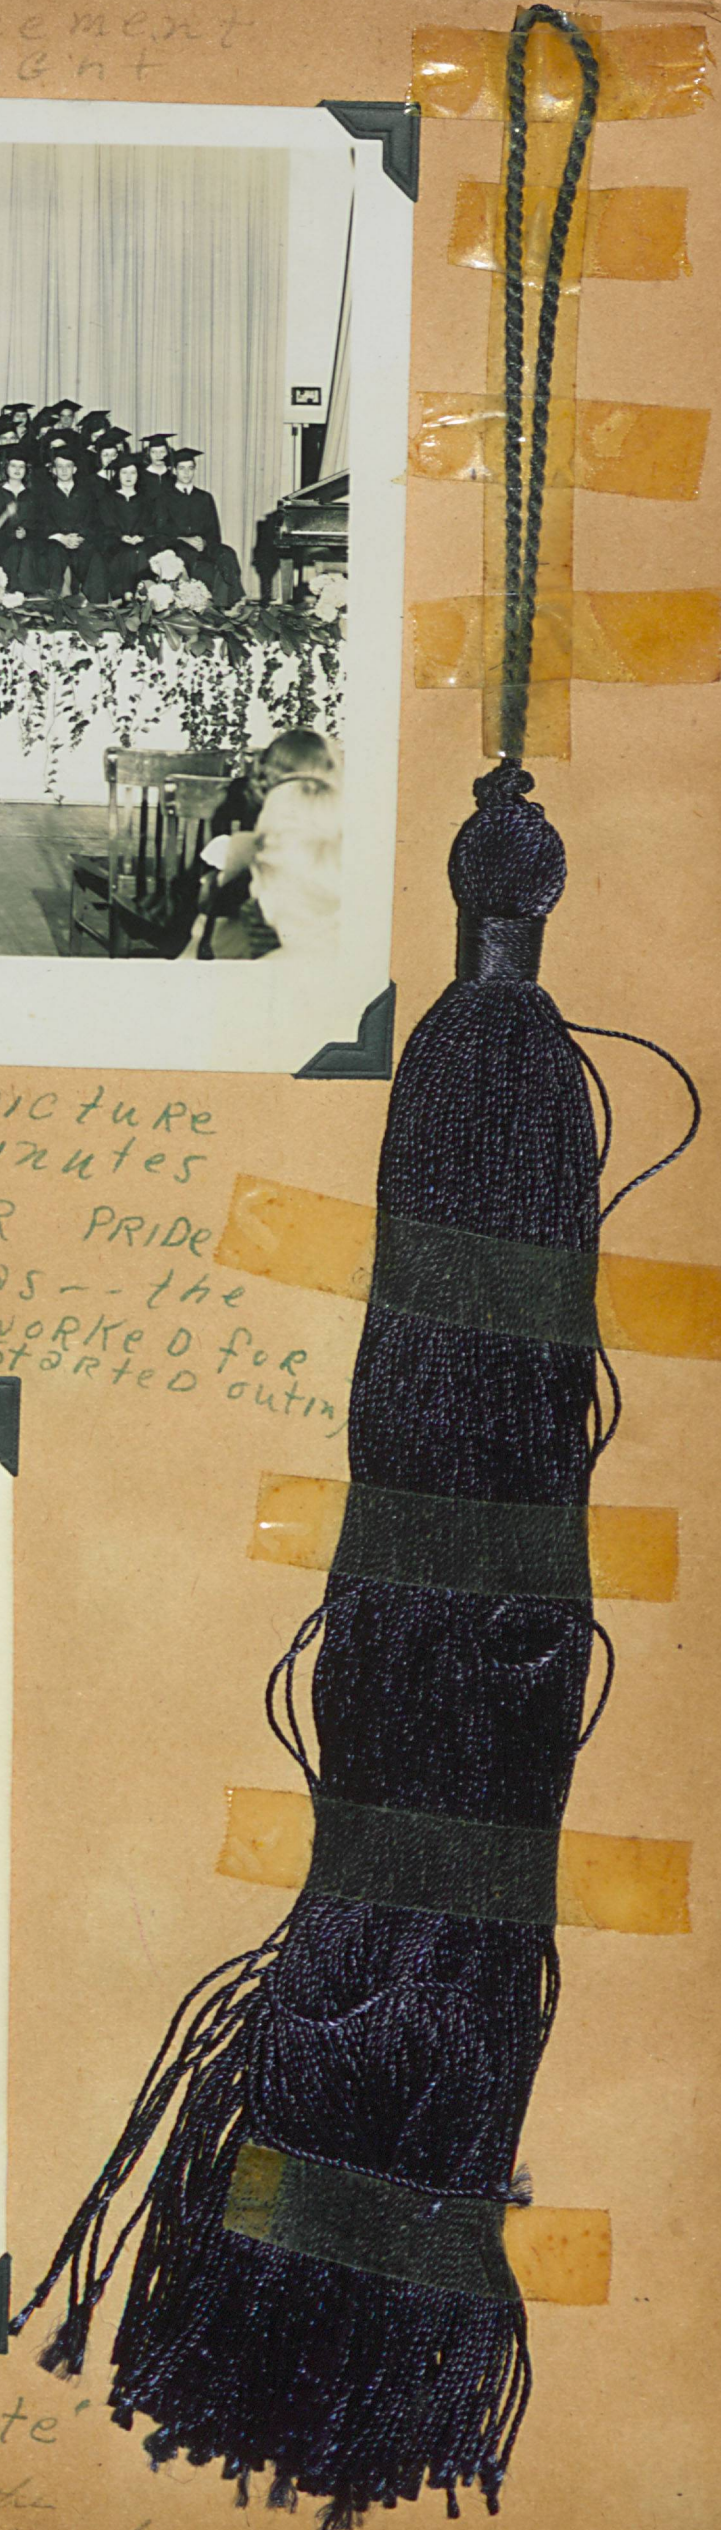 ement
ght
icture
inutes
R PRIDe
as -- the
workeD for
starteD outin,
te"
the